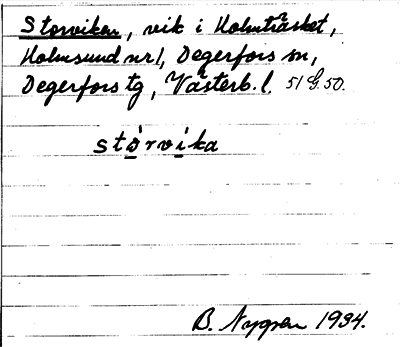 Storviken, vik i Holmträsket,
Holmsund nr 1, Degerfors sn,
Degerfors tg, Västerb. l. 51 G. 50.
stòrvika
B. Nygren 1934.